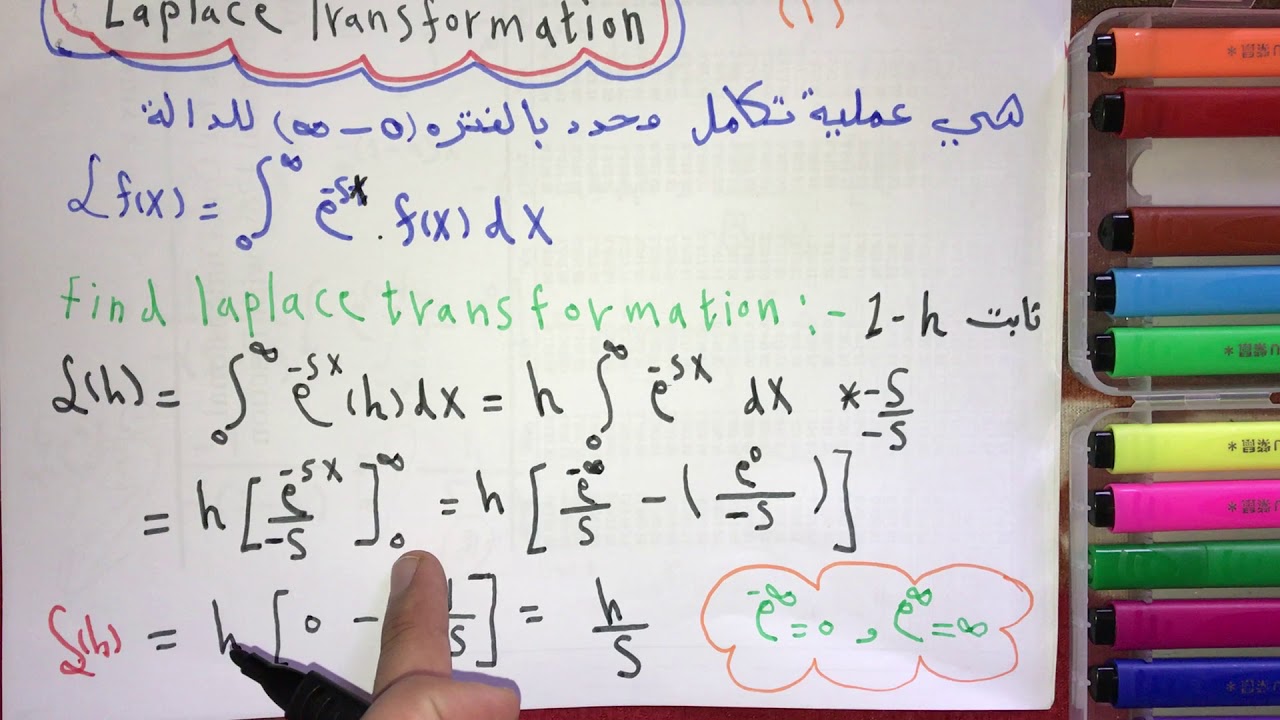 Laplace Transformation (1)
هي عملية تكامل وحدد بالفتره (٥ - ∞) للدالة
ℒ f(x) = ∫₀^∞ e^-sx . f(x) dx
find laplace transformation :- 1-h ثابت
ℒ(h) = ∫₀^∞ e^-sx (h) dx = h ∫₀^∞ e^-sx dx * -s/-s
= h [e^-sx/-s]₀^∞ = h [e^-∞/s - (e^0/-s)]
ℒ(h) = h [0 - /s] = h/s
e^-∞ = 0 , e^∞ = ∞